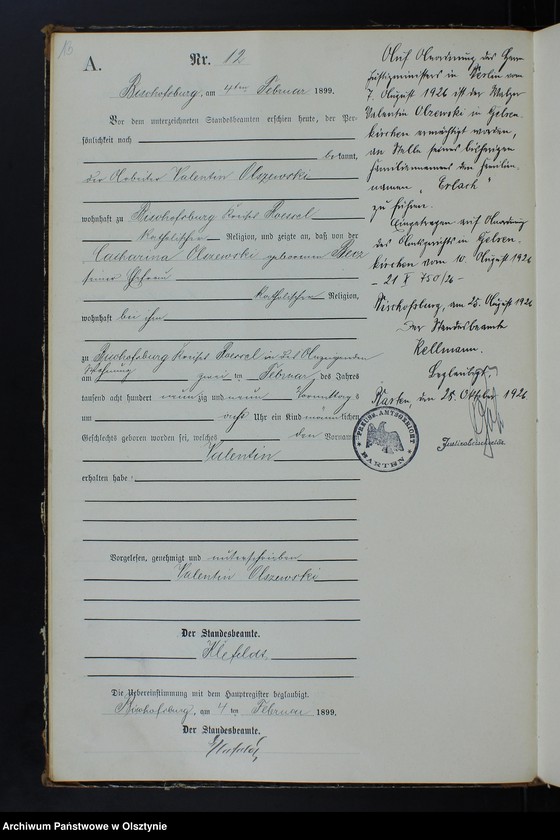 15
A.
Nr. 12
Bischofsburg, am 4ten Februar 1899.
Vor dem unterzeichneten Standesbeamten erschien heute, der Per-
sönlichkeit nach
bekannt,
der Arbeiter Valentin Olszewski
wohnhaft zu Bischofsburg Kreises Roessel
katholischer Religion, und zeigte an, daß von der
Catharina Olszewski geborenen
seiner Ehefrau
katholischer Religion,
wohnhaft bei ihm
zu Bischofsburg Kreises Roessel in des Anzeigenden
Wohnung
am zwei ten Februar des Jahres
tausend acht hundert neunzig und neun Vormittags
um acht Uhr ein Kind männlichen
Geschlechts geboren worden sei, welches den Vornamen
Valentin
erhalten habe:
Vorgelesen, genehmigt und unterschrieben
Valentin Olszewski
Der Standesbeamte.
Klefeldt
Die Uebereinstimmung mit dem Hauptregister beglaubigt.
Bischofsburg, am 4ten Februar 1899.
Der Standesbeamte.
Auf Anordnung des Herrn
Justizministers in Berlin vom
7. August 1926 ist der Metzger
Valentin Olszewski in Gelsen-
kirchen ermächtigt worden,
an Stelle seines bisherigen
Familiennamens den Familien-
namen „Erlach
zu führen.
Eingetragen auf Anordnung
des Amtsgerichts in Gelsen-
kirchen vom 10. August 1926
- 21 X 750/26 -
Bischofsburg, am 25. August 1926
Der Standesbeamte
Kellmann.
Beglaubigt
Barten, den 28. Oktober 1926
PREUSS. AMTSGERICHT
BARTEN
Archiwum Państwowe w Olsztynie